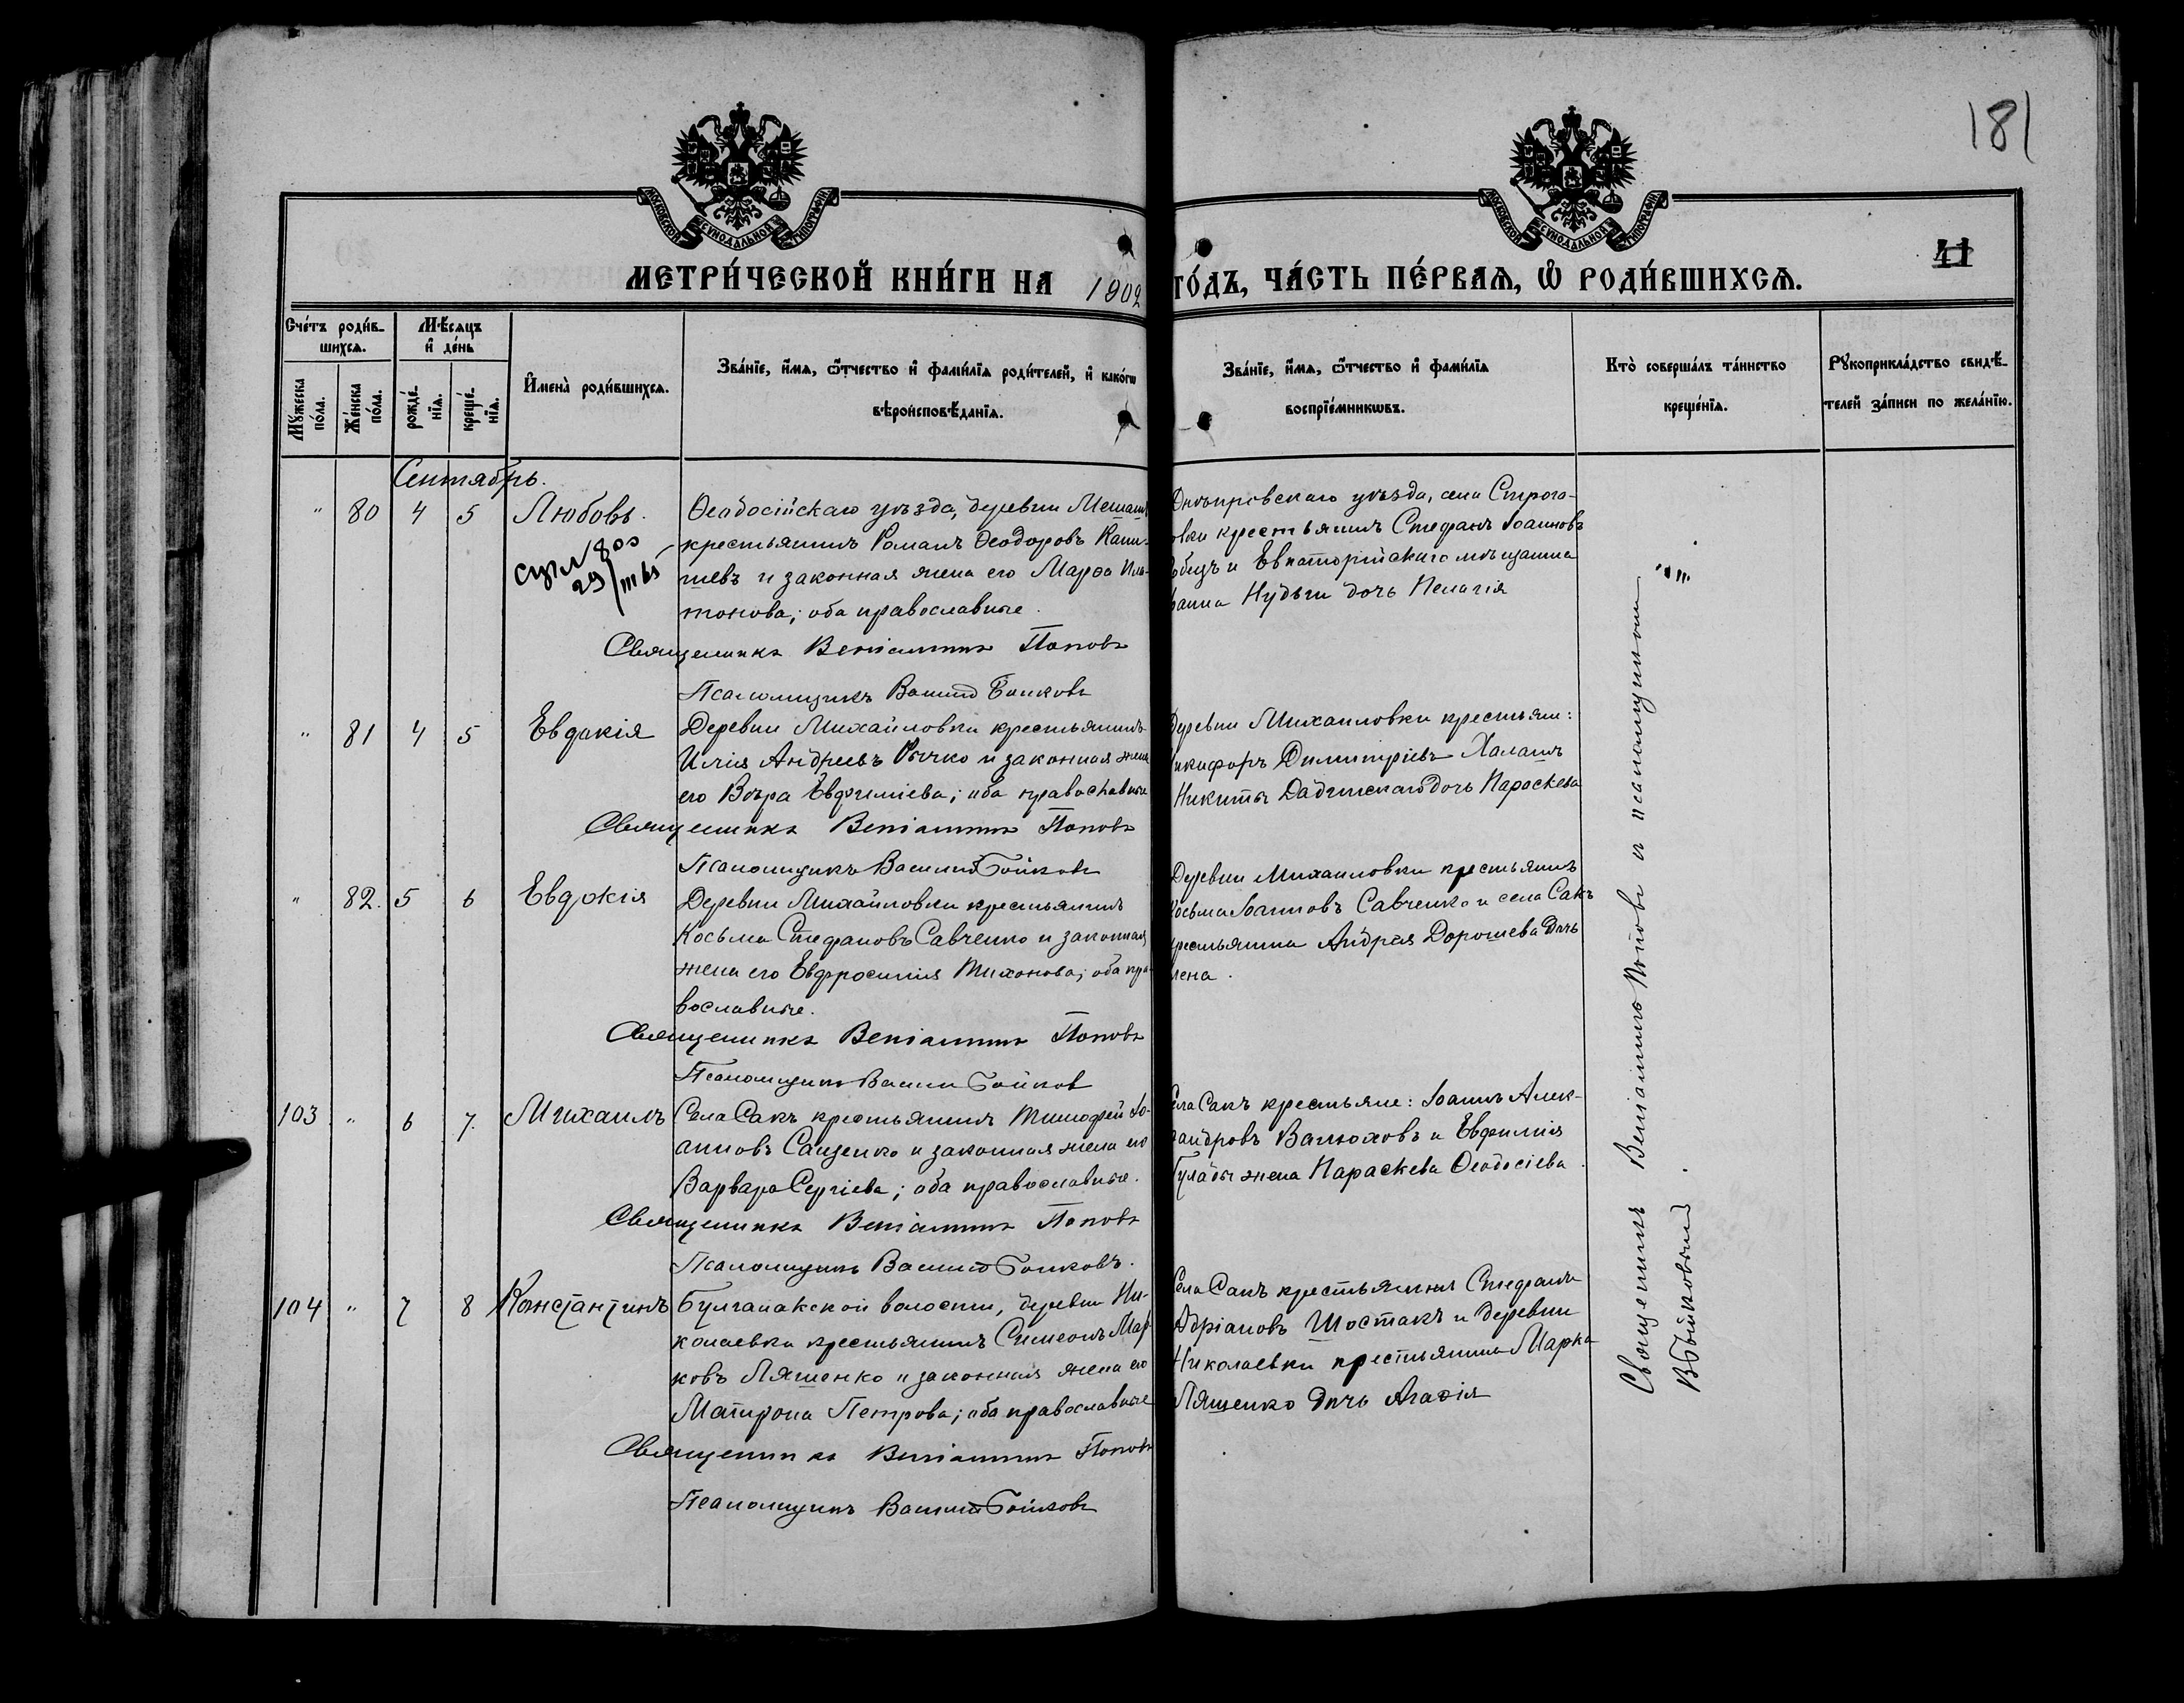 181
МОСКОВСКОЙ СѴНОДАЛЬНОЙ ТИПОГРАФІИ
МОСКОВСКОЙ СѴНОДАЛЬНОЙ ТИПОГРАФІИ
41
МЕТРИ́ЧЕСКОЙ КНИ́ГИ НА 1902
ГО́ДЪ, ЧА́СТЬ ПЕ́РВАѦ, Ѡ҆ РОДИ́ВШИХСѦ.
Сче́тъ роди́в-
шихсѧ.
Мꙋжеска по́ла.
Же́нска по́ла.
Мѣ́сѧцъ
и҆ де́нь
рожде́-
нїѧ.
креще́-
нїѧ.
И҆мена̀ роди́вшихсѧ.
Зва́нїе, и҆́мѧ, ѻ҆́тчество и҆ фами́лїѧ роди́телей, и҆ како́гѡ
вѣроисповѣ́данїѧ.
Зва́нїе, и҆́мѧ, ѻ҆́тчество и҆ фами́лїѧ
воспрїе́мникѡвъ.
Кто̀ соверша́лъ та́инство
креще́нїѧ.
Рꙋкоприкла́дство свидѣ́-
телей за́писи по жела́нїю.
Сентябрь.
" 80 4 5 Любовь.
Ѳеодосійскаго уѣзда, деревни
крестьянинъ Романъ Ѳеодоровъ
и законная жена его Марѳа
тонова; оба православные.
Священникъ Веніаминъ Поповъ
Псаломщикъ Василій Бойковъ
Днѣпровскаго уѣзда, села Строга-
овки крестьянинъ Стефанъ Іоанновъ
и Евпаторійскаго мѣщанина
Нудьги дочь Пелагія
" 81 4 5 Евдокія
Деревни Михайловки крестьянинъ
Илія Андреевъ Рычко и законная жена
его Вѣра Евфиміева; оба православные
Священникъ Веніаминъ Поповъ
Псаломщикъ Василій Бойковъ
Деревни Михайловки крестьяне:
икифоръ Димитріевъ Халанъ
Никиты дочь Параскева
" 82. 5 6 Евдокія
Деревни Михайловки крестьянинъ
Косьма Стефановъ Савченко и законная
жена его Евфросинія Тихонова; оба пра-
вославные.
Священникъ Веніаминъ Поповъ
Псаломщикъ Василій Бойков
Деревни Михайловки крестьянинъ
осьма Іоанновъ Савченко и села Сакъ
рестьянина Андрея Дорошева дочь
лена.
103 " 6 7. Михаилъ
Села Сакъ крестьянинъ Тимофей Іо-
анновъ Саценко и законная жена его
Варвара Сергіева; оба православные.
Священникъ Веніаминъ Поповъ
Псаломщикъ Василій Бойковъ.
ела Сакъ крестьяне: Іоаннъ Алек-
андровъ Ванюховъ и Евфимія
жена Параскева Ѳеодосіева.
104 " 7 8 Константинъ
Булганакской волости, деревни Ни-
колаевки крестьянинъ Симеонъ Мар-
ковъ Ляшенко и законная жена его
Матрона Петрова; оба православные
Священникъ Веніаминъ Поповъ
Псаломщикъ Василій Бойковъ
Села Сакъ крестьянинъ Стефанъ
Адріановъ Шостакъ и деревни
Николаевки крестьянина Марка
Лященко дочь Агафія
Священникъ Веніаминъ Поповъ и псаломщикомъ
В Бойковымъ